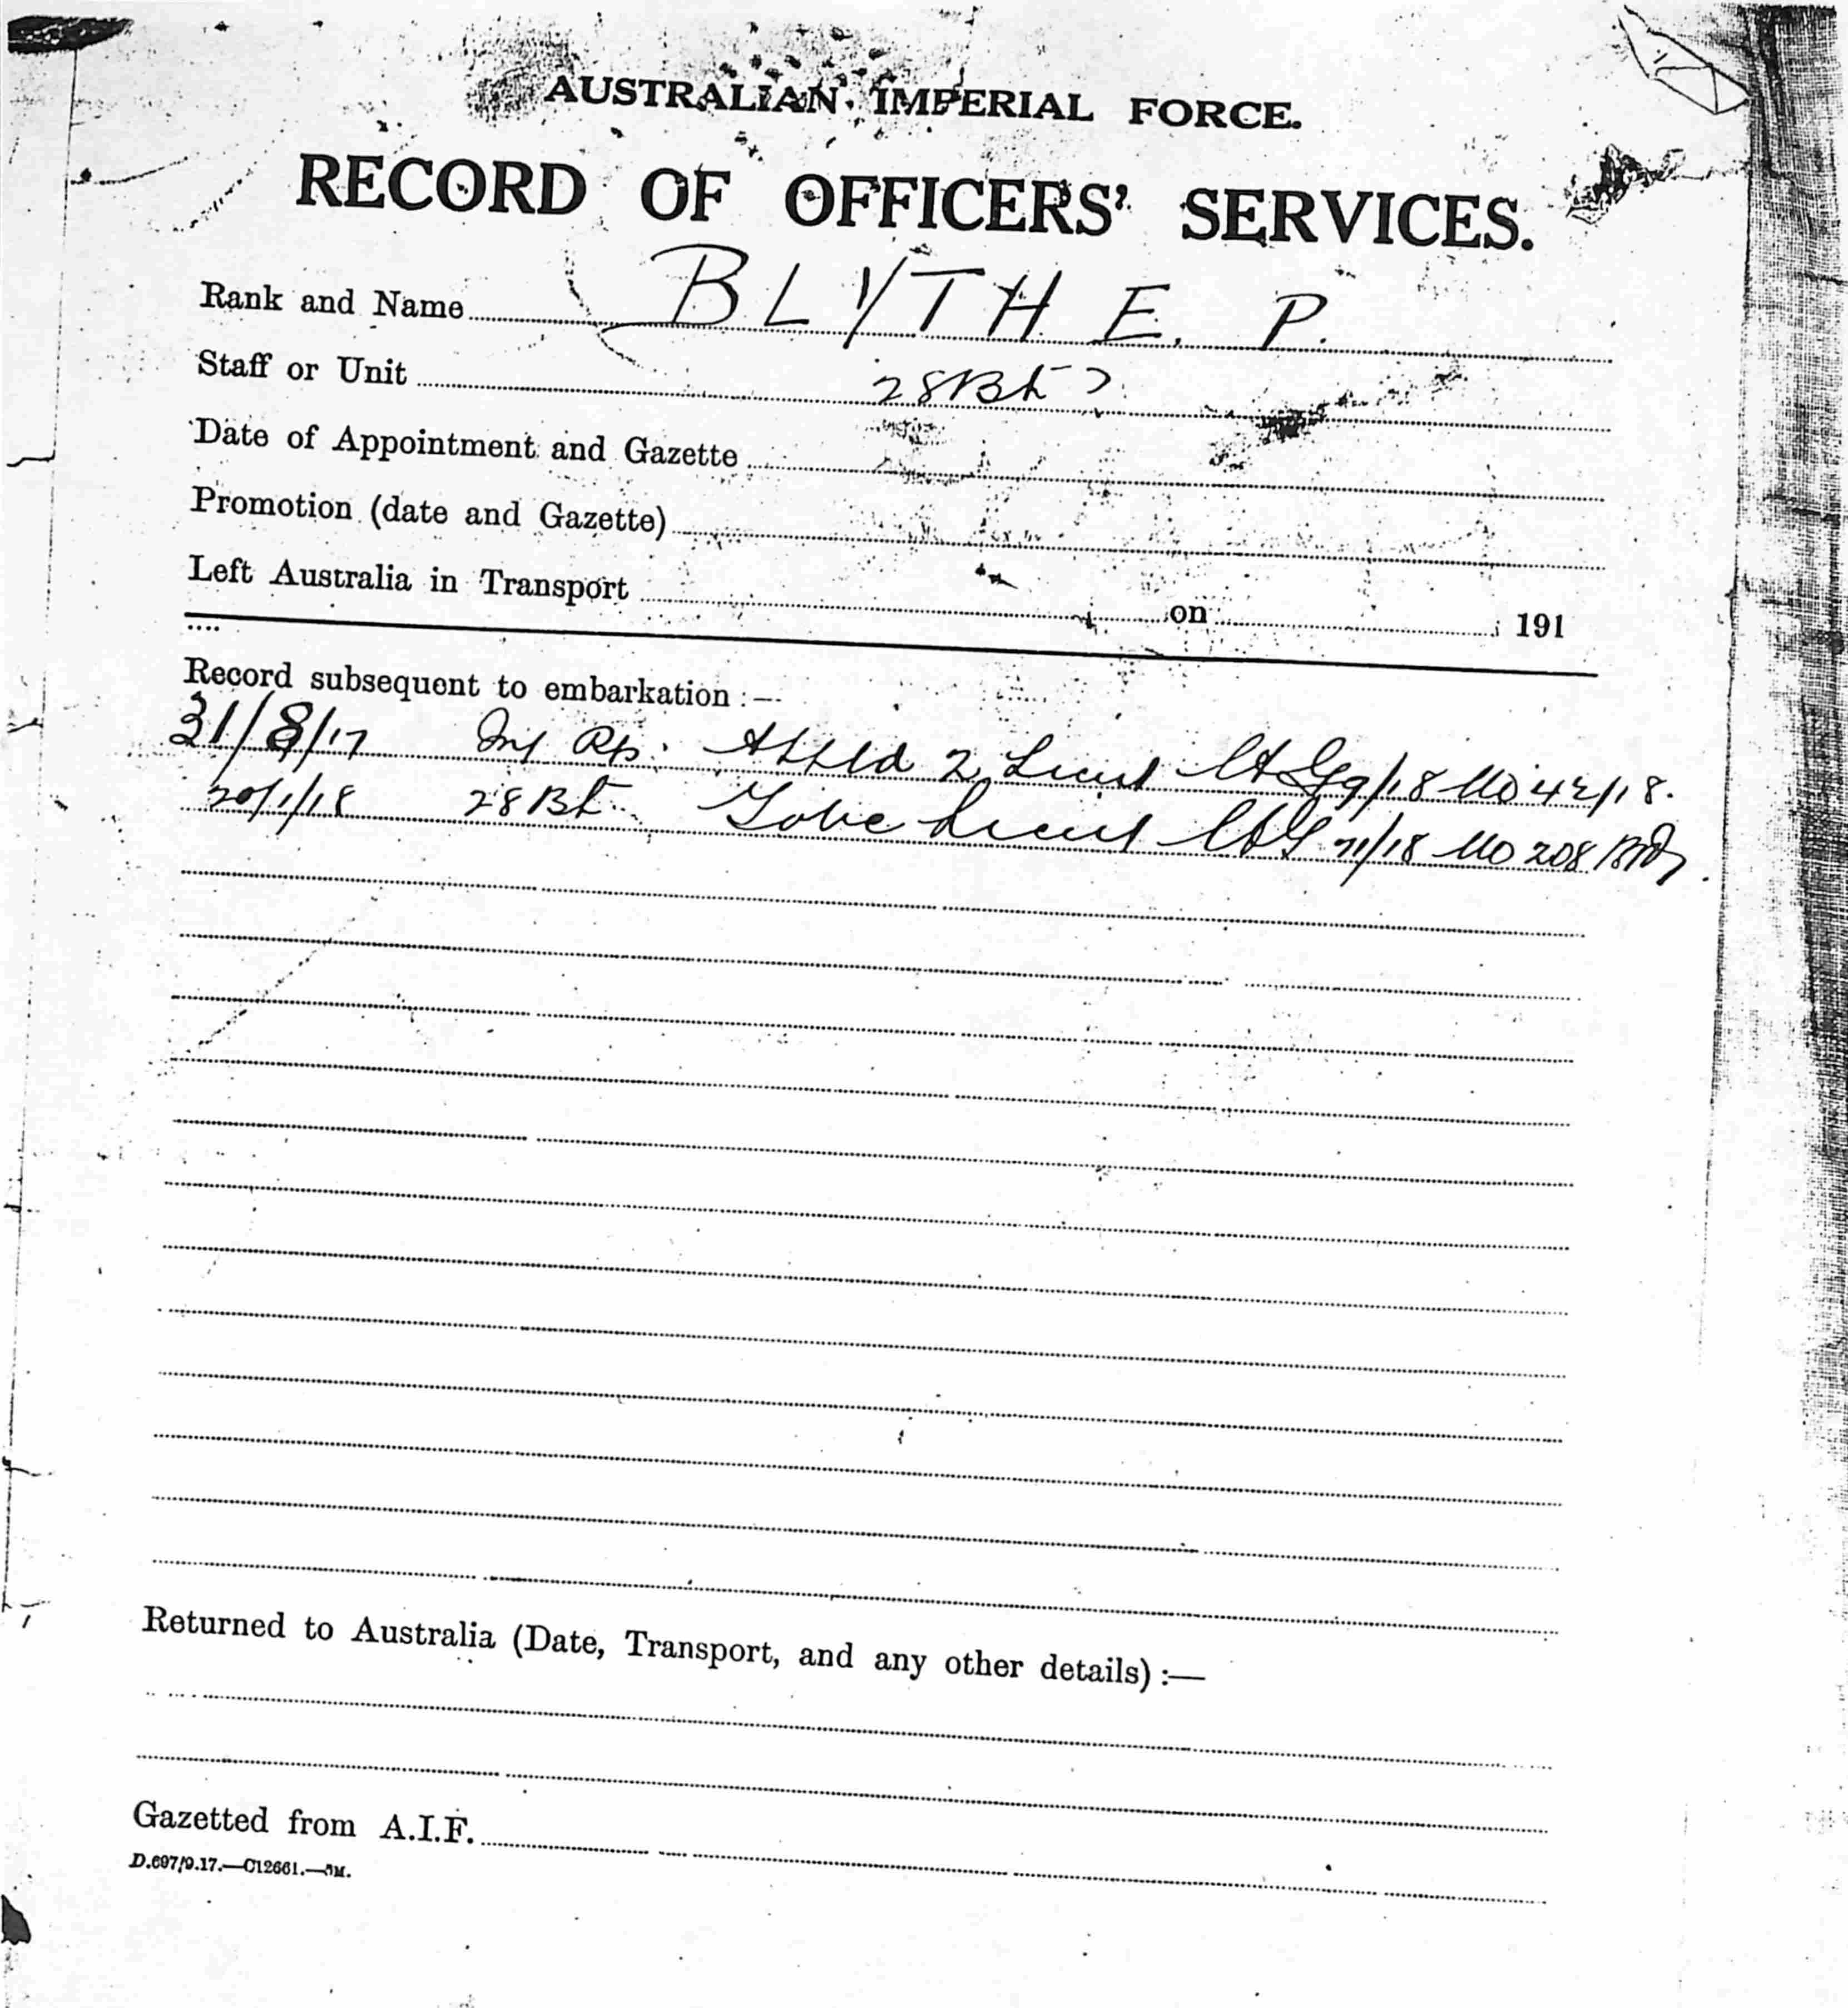 AUSTRALIAN IMPERIAL FORCE.
RECORD OF OFFICERS' SERVICES.
Rank and Name BLYTH E. P.
Staff or Unit 28 Bt ?
Date of Appointment and Gazette
Promotion (date and Gazette)
Left Australia in Transport on 191
Record subsequent to embarkation :—
31/8/17 Inf Rfts. Apptd 2 Lieut 9/18 MO 42/18.
20/1/18 28 Bt. To be Lieut 21/18 MO 208
Returned to Australia (Date, Transport, and any other details) :—
Gazetted from A.I.F.
D.697/9.17.—C12661.—5M.